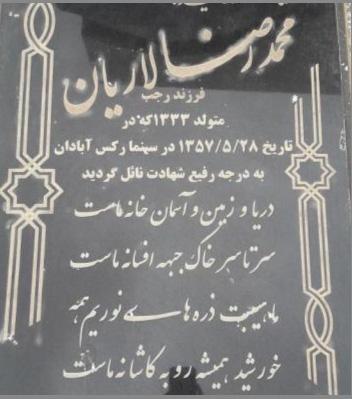 محمدرضا سالاریان
فرزند رجب
متولد ۱۳۳۳ که در
تاریخ ۱۳۵۷/۵/۲۸ در سینما رکس آبادان
به درجه رفیع شهادت نائل گردید
دریا و زمین و آسمان خانه ماست
سرتاسر خاک جبهه افسانه ماست
ذره های نوریم همه
خورشید همیشه رو به کاشانه ماست